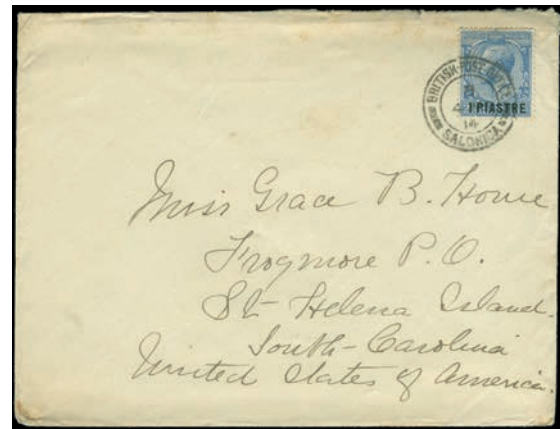 BRITISH POST OFFICE
14
SALONICA
1 PIASTRE
Miss Grace B. Howe
Frogmore P.O.
St Helena Island.
South-Carolina
United States of America.